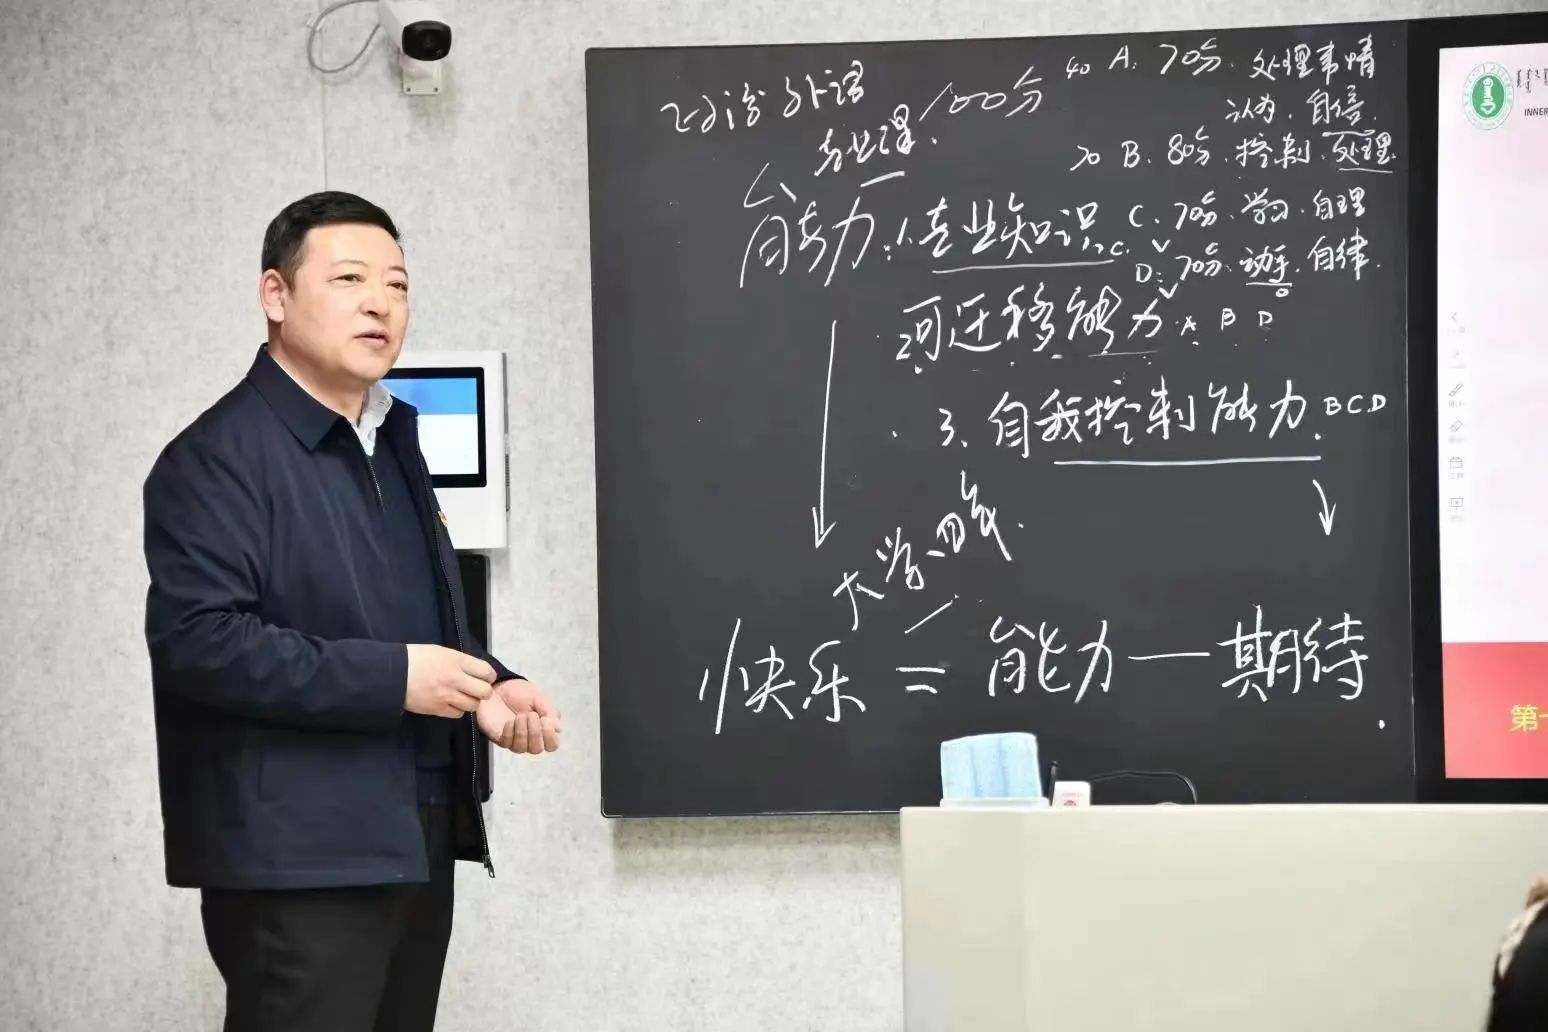 外语
专业课. 100分
40 A. 70分. 处理事情
认为. 自信.
70 B. 80分. 控制. 处理.
能力: 1.专业知识. C. ✓
C. 70分. 学习. 自理
D. 70分. 动手. 自律.
2.可迁移能力 ✓ A B D
3. 自我控制能力. BCD
大学四年.
快乐 = 能力 — 期待.
INNER
第一